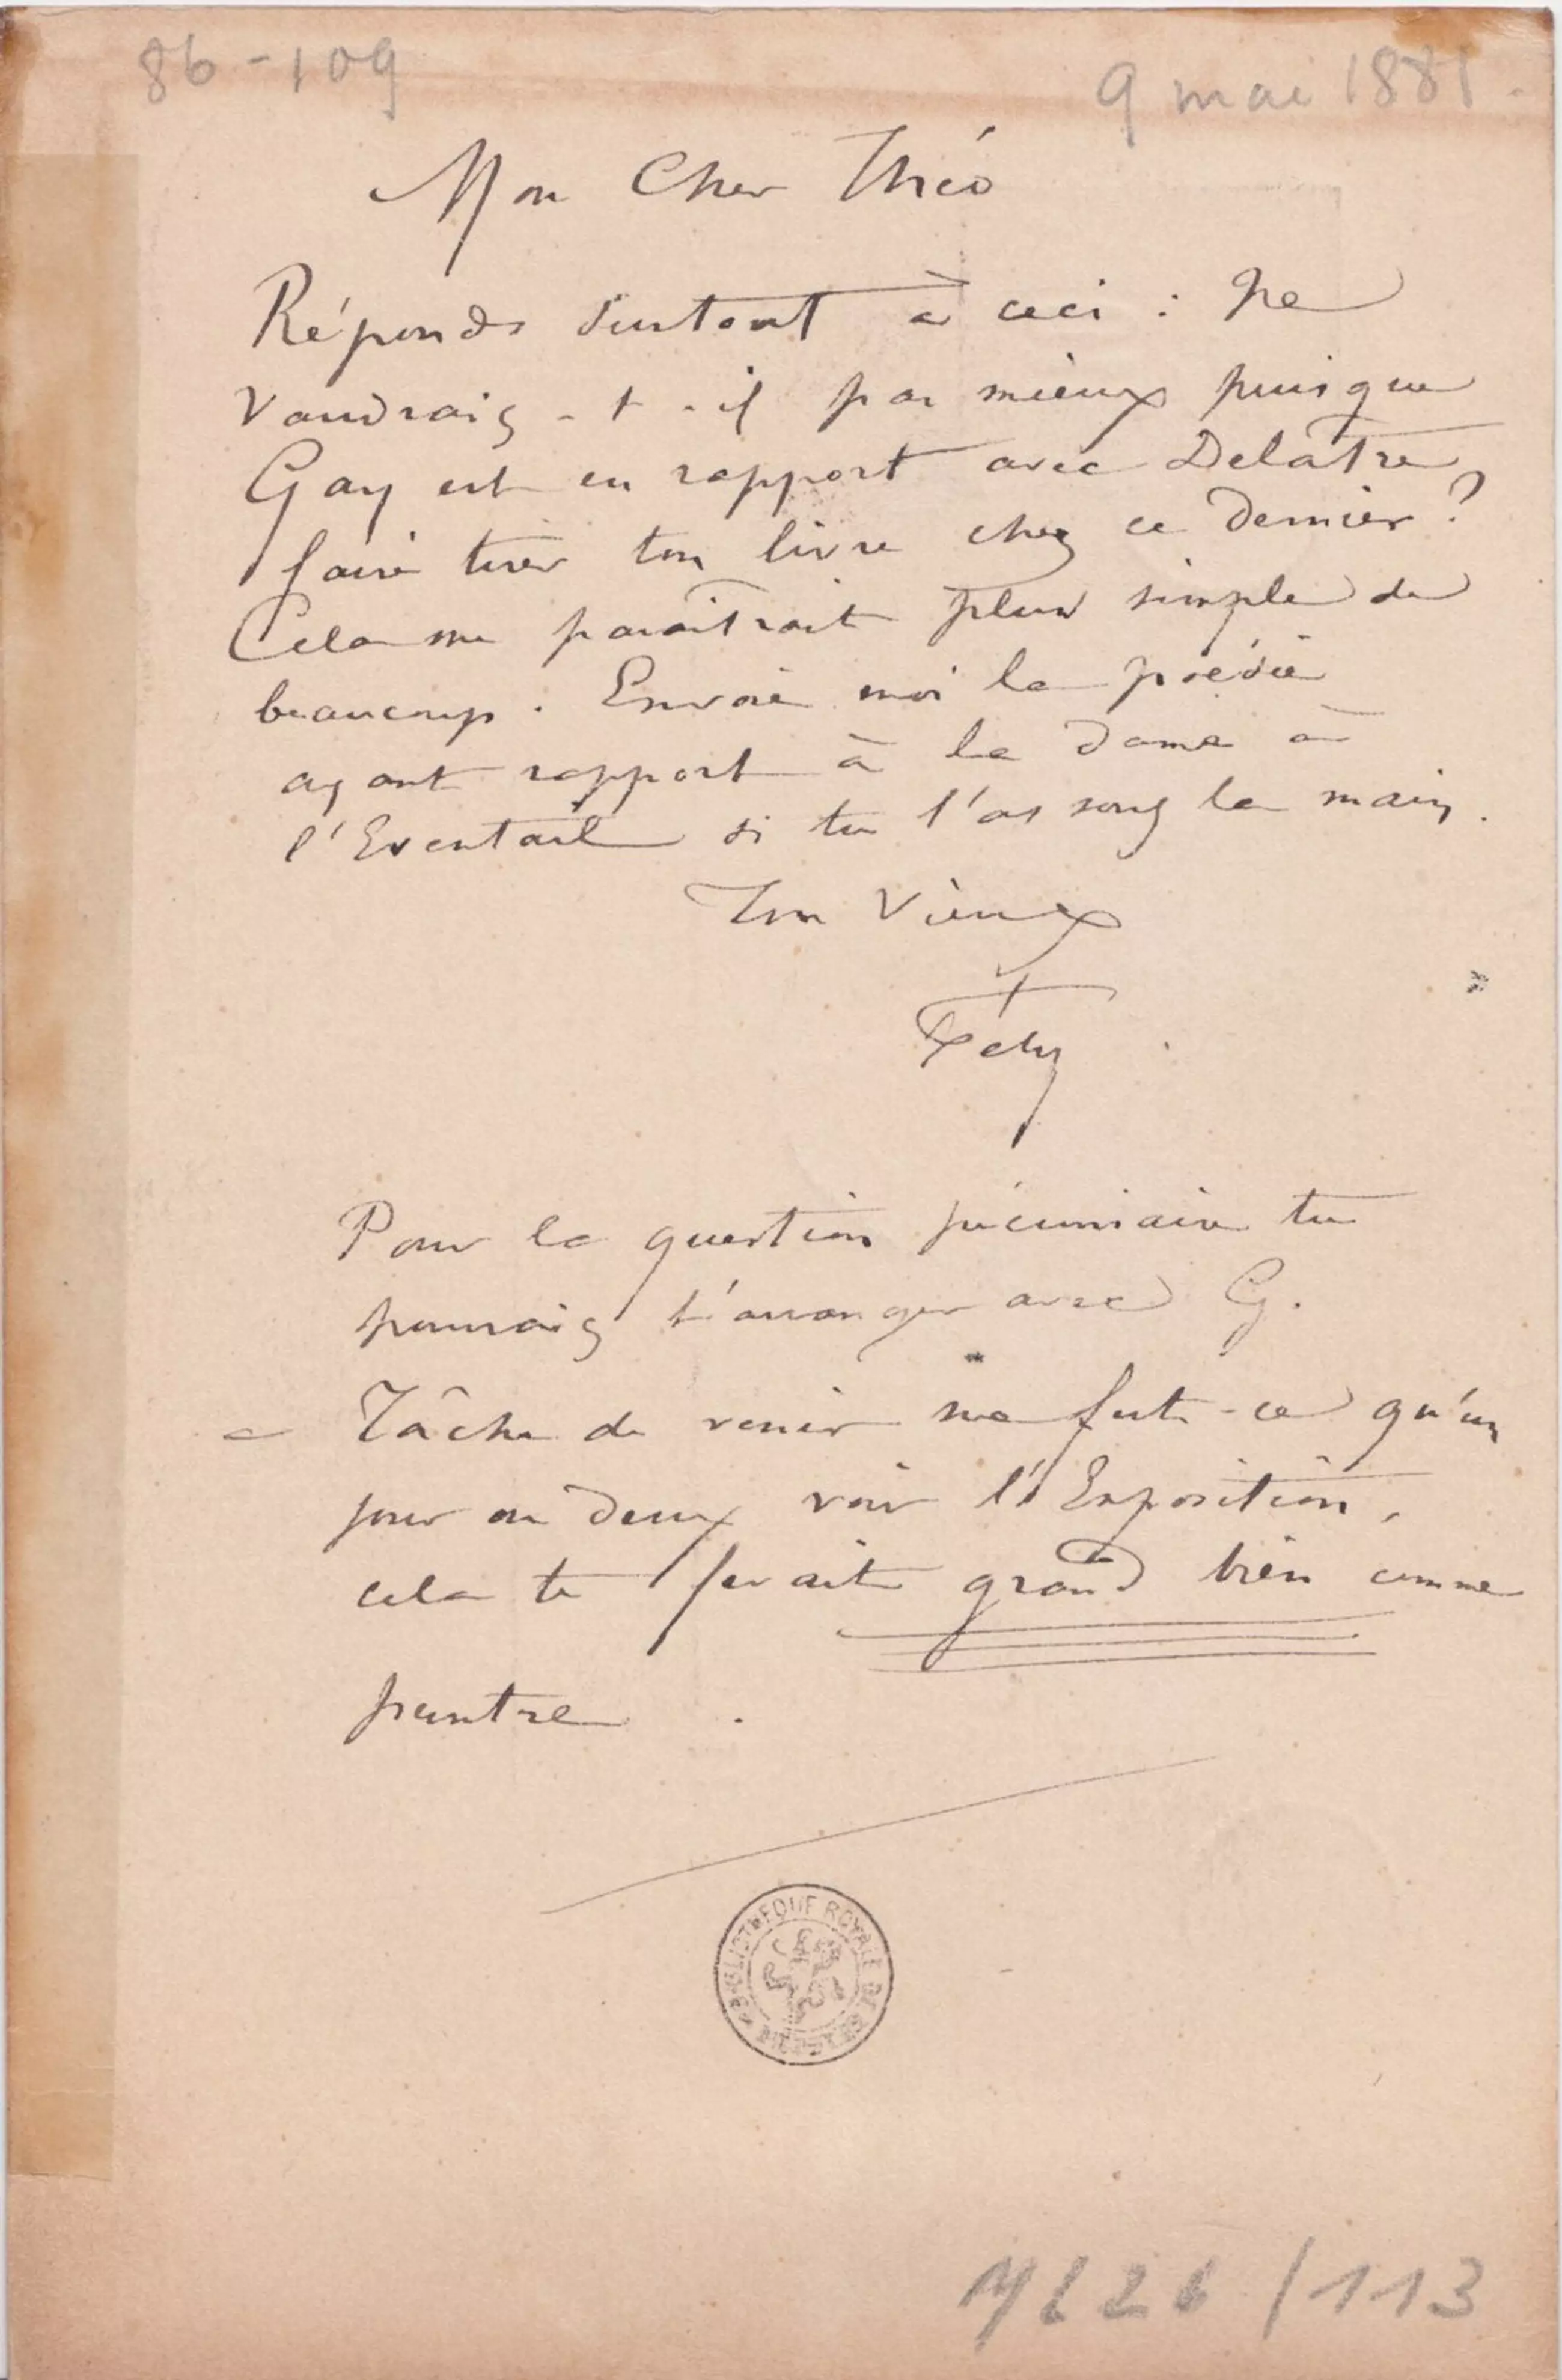 86-109
9 mai 1881.
Mon Cher Théo
Réponds surtout à ceci : Ne
Vaudrais-t-il pas mieux puisque
Gay est en rapport avec Delâtre
faire tirer ton livre chez ce dernier ?
Cela me paraîtrait plus simple de
beaucoup. Envoie moi la poésie
ayant rapport à la dame à
l'Eventail si tu l'as sous la main.
Ton Vieux
Fély
Pour la question pécuniaire tu
pourrais t'arranger avec G.
= Tâche de venir ne fut-ce qu'un
jour ou deux voir l'Exposition,
cela te ferait grand bien comme
peintre.
BIBLIOTHEQUE ROYALE DE BELGIQUE
ML 26 / 113